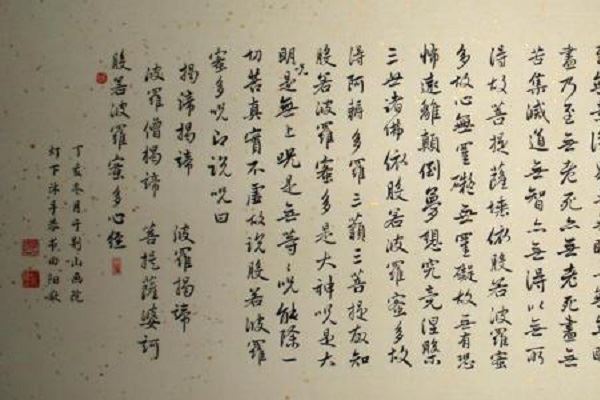 盡乃至無老死亦無老死盡無
苦集滅道無智亦無得以無所
得故菩提薩埵依般若波羅蜜
多故心無罣礙無罣礙故無有恐
怖遠離顛倒夢想究竟涅槃
三世諸佛依般若波羅蜜多故
得阿耨多羅三藐三菩提故知
般若波羅蜜多是大神咒是大
明咒是無上咒是無等〻咒能除一
切苦真實不虛故說般若波羅
蜜多咒即說咒曰
揭諦揭諦 波羅揭諦
波羅僧揭諦 菩提薩婆訶
般若波羅蜜多心經
丁亥冬月于荆山画院
灯下沐手恭书曲阳